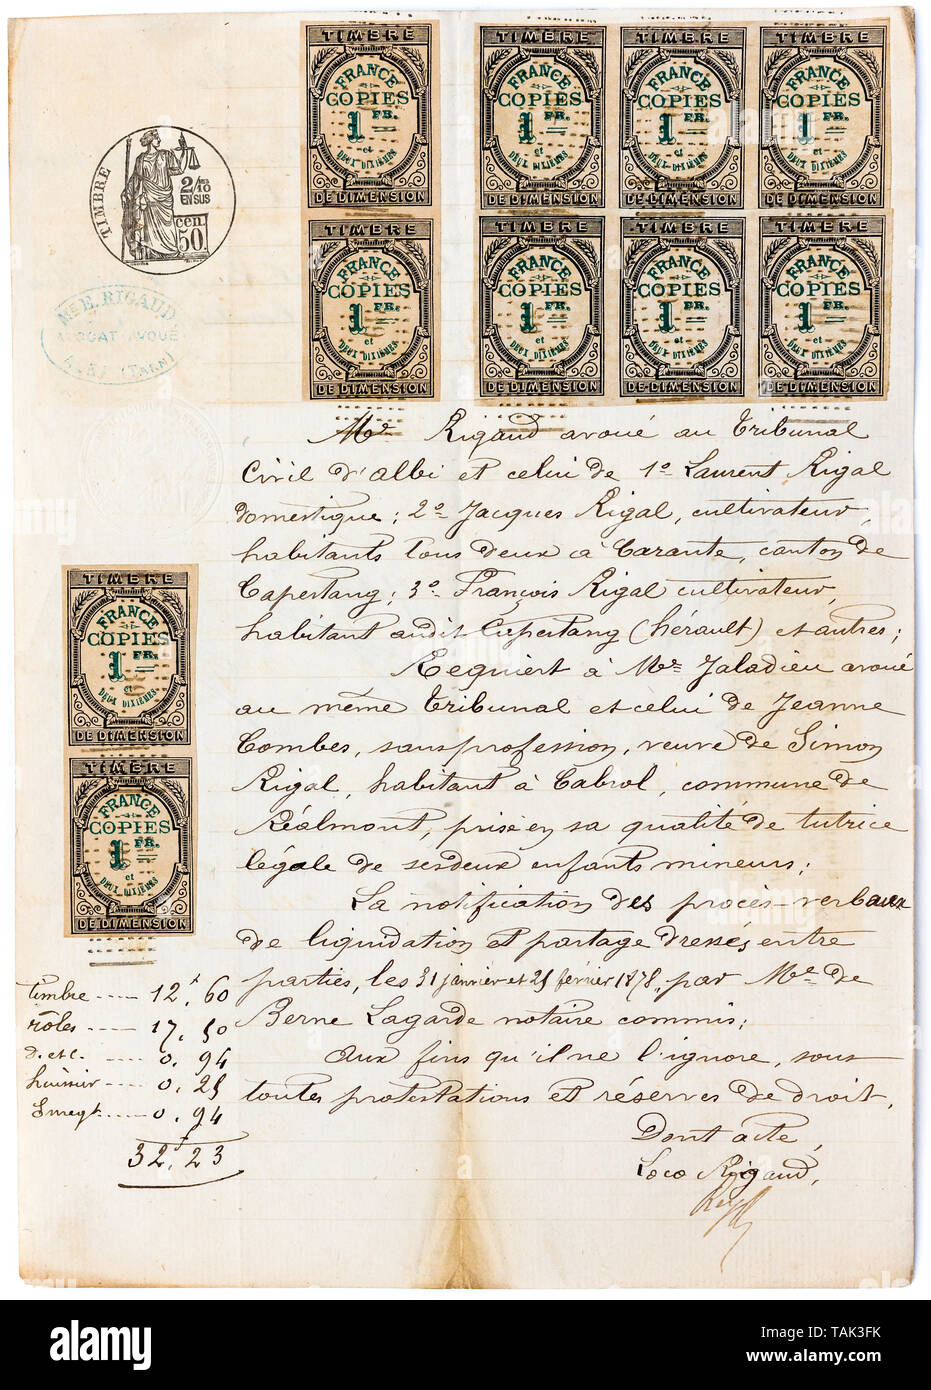 TIMBRE
FRANCE
COPIES
1 FR.
et
DEUX DIXIÈMES
DE DIMENSION
TIMBRE
FRANCE
COPIES
1 FR.
et
DEUX DIXIÈMES
DE DIMENSION
TIMBRE
FRANCE
COPIES
1 FR.
et
DEUX DIXIÈMES
DE DIMENSION
TIMBRE
FRANCE
COPIES
1 FR.
et
DEUX DIXIÈMES
DE DIMENSION
TIMBRE
2/10
EN SUS
50 cen
TIMBRE
FRANCE
COPIES
1 FR.
et
DEUX DIXIÈMES
DE DIMENSION
TIMBRE
FRANCE
COPIES
1 FR.
et
DEUX DIXIÈMES
DE DIMENSION
TIMBRE
FRANCE
COPIES
1 FR.
et
DEUX DIXIÈMES
DE DIMENSION
TIMBRE
FRANCE
COPIES
1 FR.
et
DEUX DIXIÈMES
DE DIMENSION
Me E. RIGAUD
AVOCAT AVOUÉ
ALBI (TARN)
Me Rigaud avoué au Tribunal
Civil d'albi et celui de 1o Laurent Rigal
domestique; 2o Jacques Rigal, cultivateur,
habitants tous deux à Carante, canton de
Capestang; 3o François Rigal cultivateur,
habitant audit Capestang (hérault) et autres;
Requiert à Me Jaladieu avoué
au même Tribunal et celui de Jeanne
Combes, sans profession, veuve de Simon
Rigal, habitant à Cabrol, commune de
Réalmont, prise en sa qualité de tutrice
légale de ses deux enfants mineurs;
La notification des procès-verbaux
de liquidation et partage dressés entre
parties, les 31 janvier et 25 février 1878, par Me de
Berne Lagarde notaire commis;
Aux fins qu'il ne l'ignore, sous
toutes protestations et réserves de droit,
Dont acte,
Loco Rigaud,
TIMBRE
FRANCE
COPIES
1 FR.
et
DEUX DIXIÈMES
DE DIMENSION
TIMBRE
FRANCE
COPIES
1 FR.
et
DEUX DIXIÈMES
DE DIMENSION
timbre ---- 12f, 60
rôles ---- 17, 50
d. et c. ---- 0. 94
huissier ---- 0. 25
---- 0. 94
32f, 23
alamy
Image ID: TAK3FK
www.alamy.com